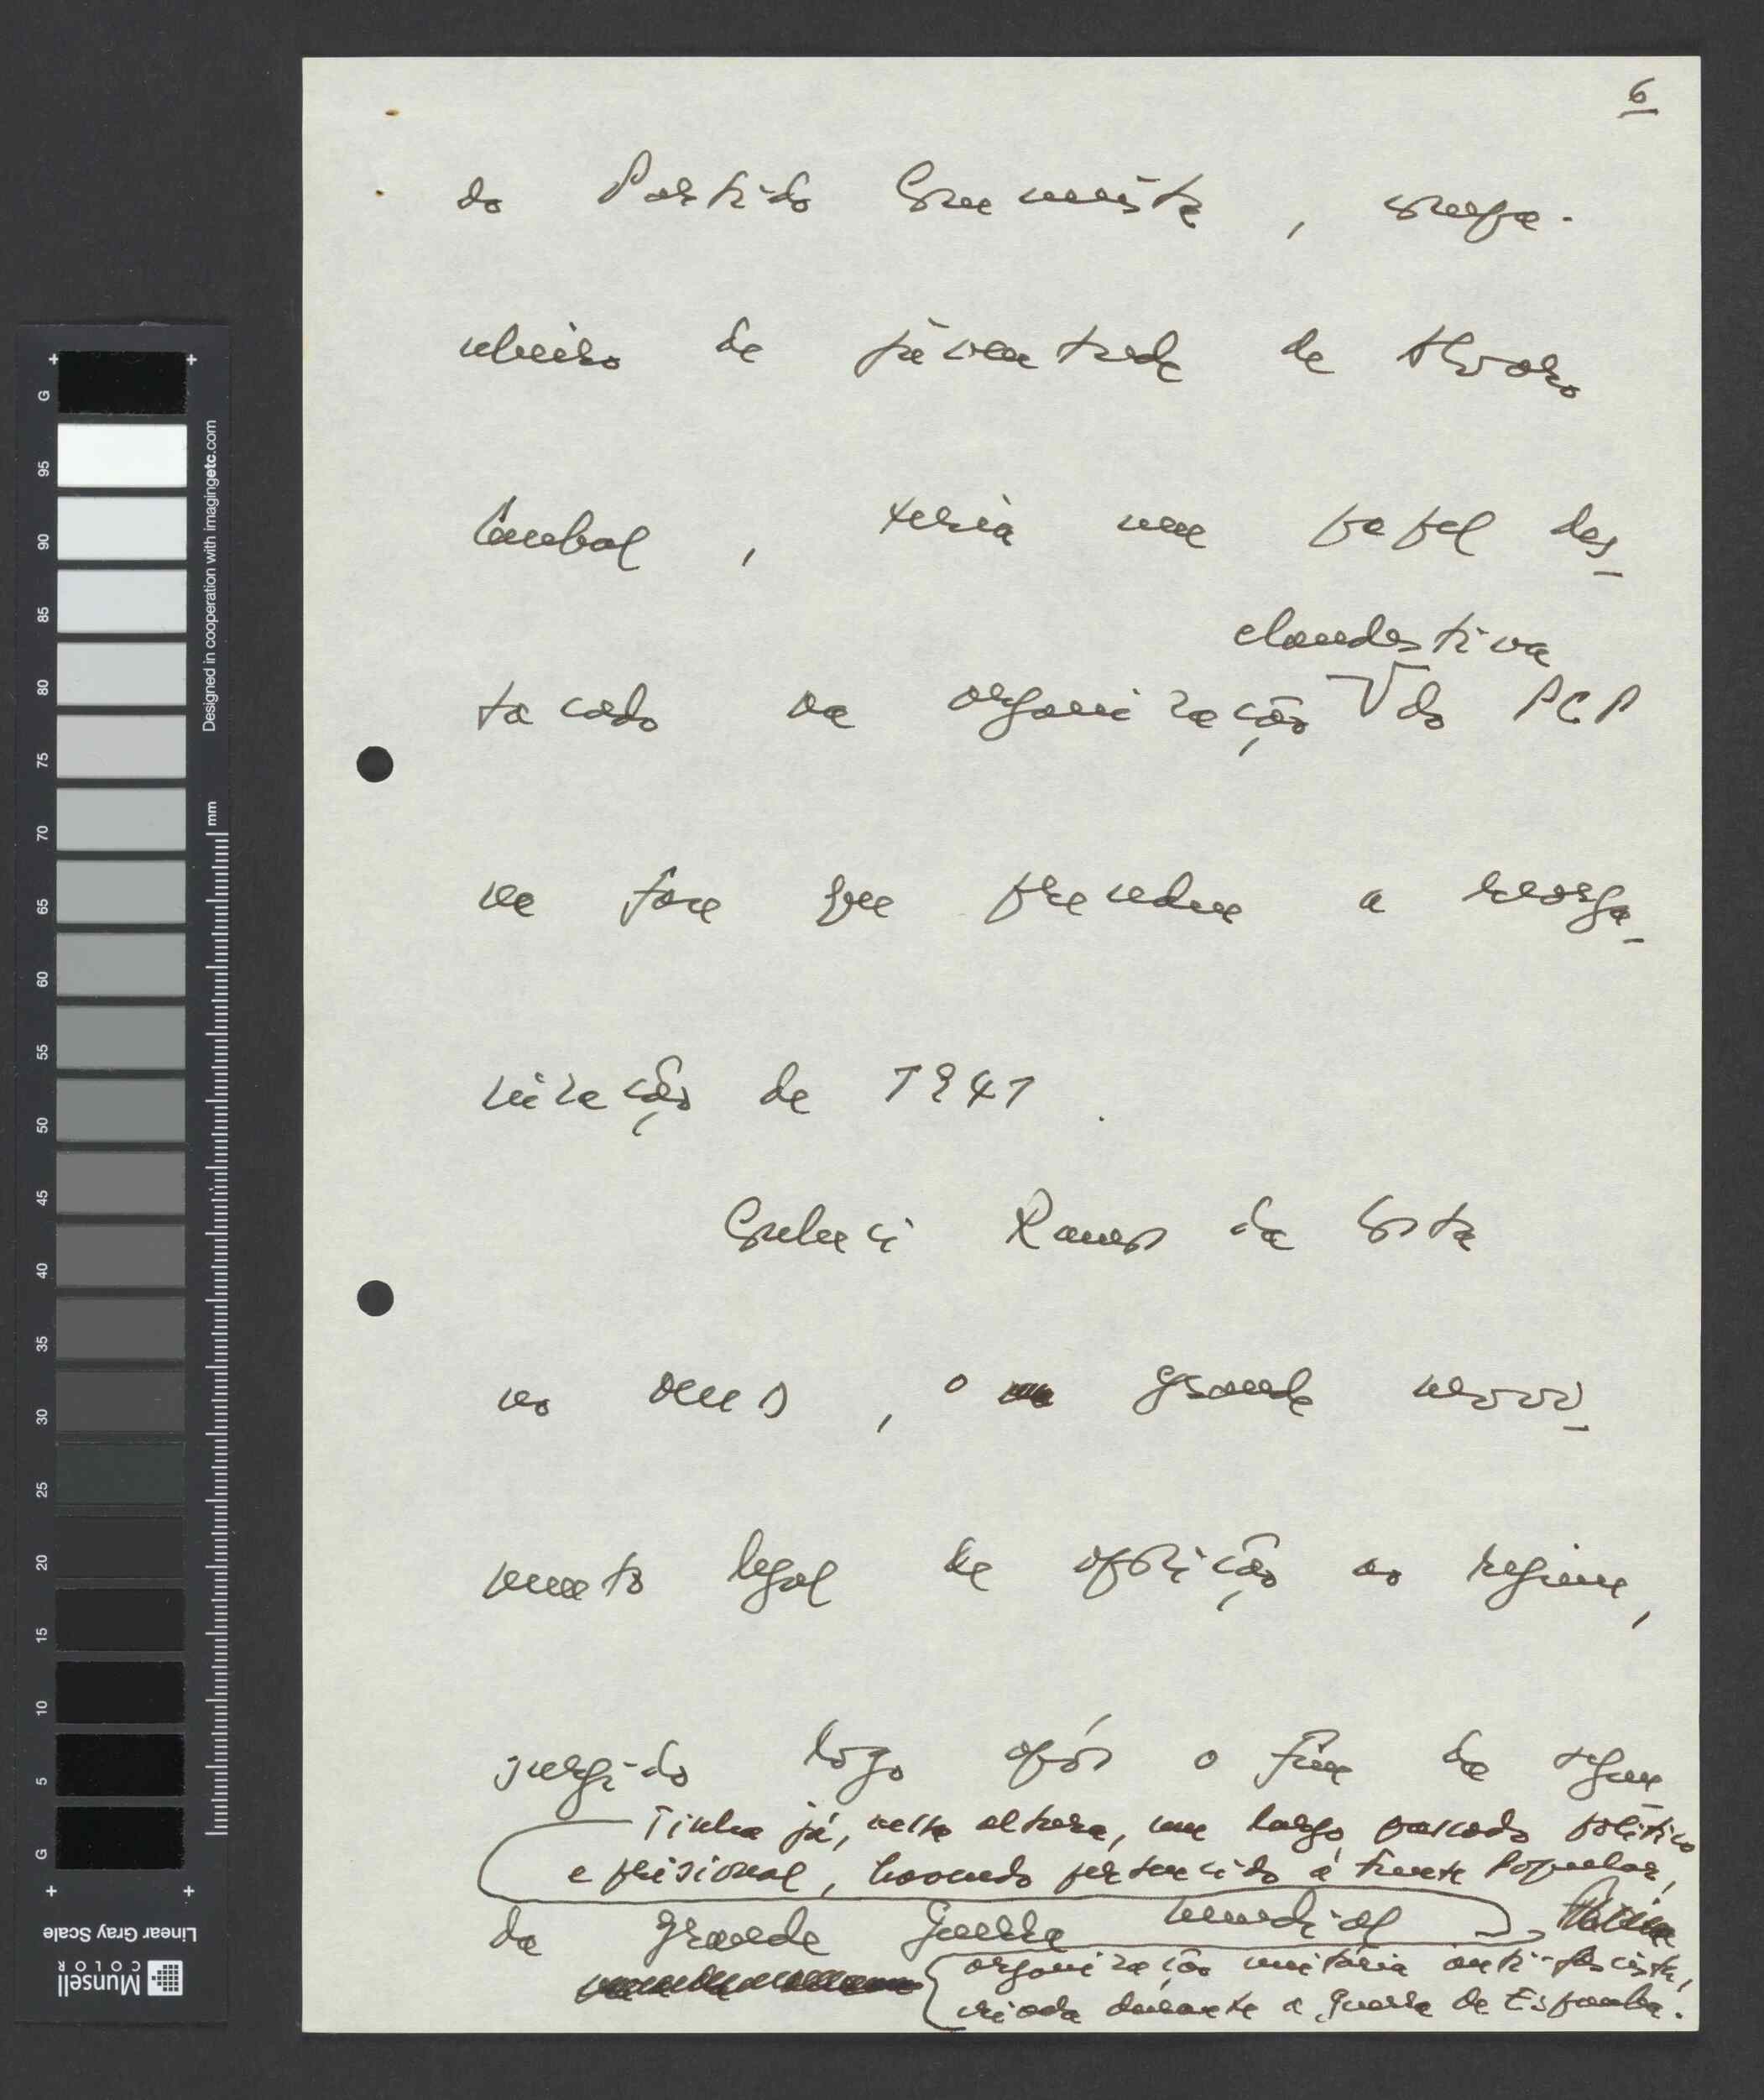 6
do Partido Comunista, compa-
nheiro de juventude de Alvaro
Cunhal, teria um papel des-
clandestina
tacado na organização do PCP
na fase que precedeu a reorga-
nização de 1941.
Conheci Ramos da Costa
no MUD, o grande movi-
mento legal de oposição ao regime,
surgido logo após o fim da segun-
Tinha já, nesta altura, um largo passado político
e prisional, havendo pertencido à Frente Popular,
da grande Guerra mundial
organização unitária anti-fascista,
criada durante a guerra de Espanha.
Designed in cooperation with imagingetc.com
mm
G
95
90
85
80
75
70
65
60
55
50
45
40
35
30
25
20
15
10
5
G
Linear Gray Scale
Munsell
COLOR